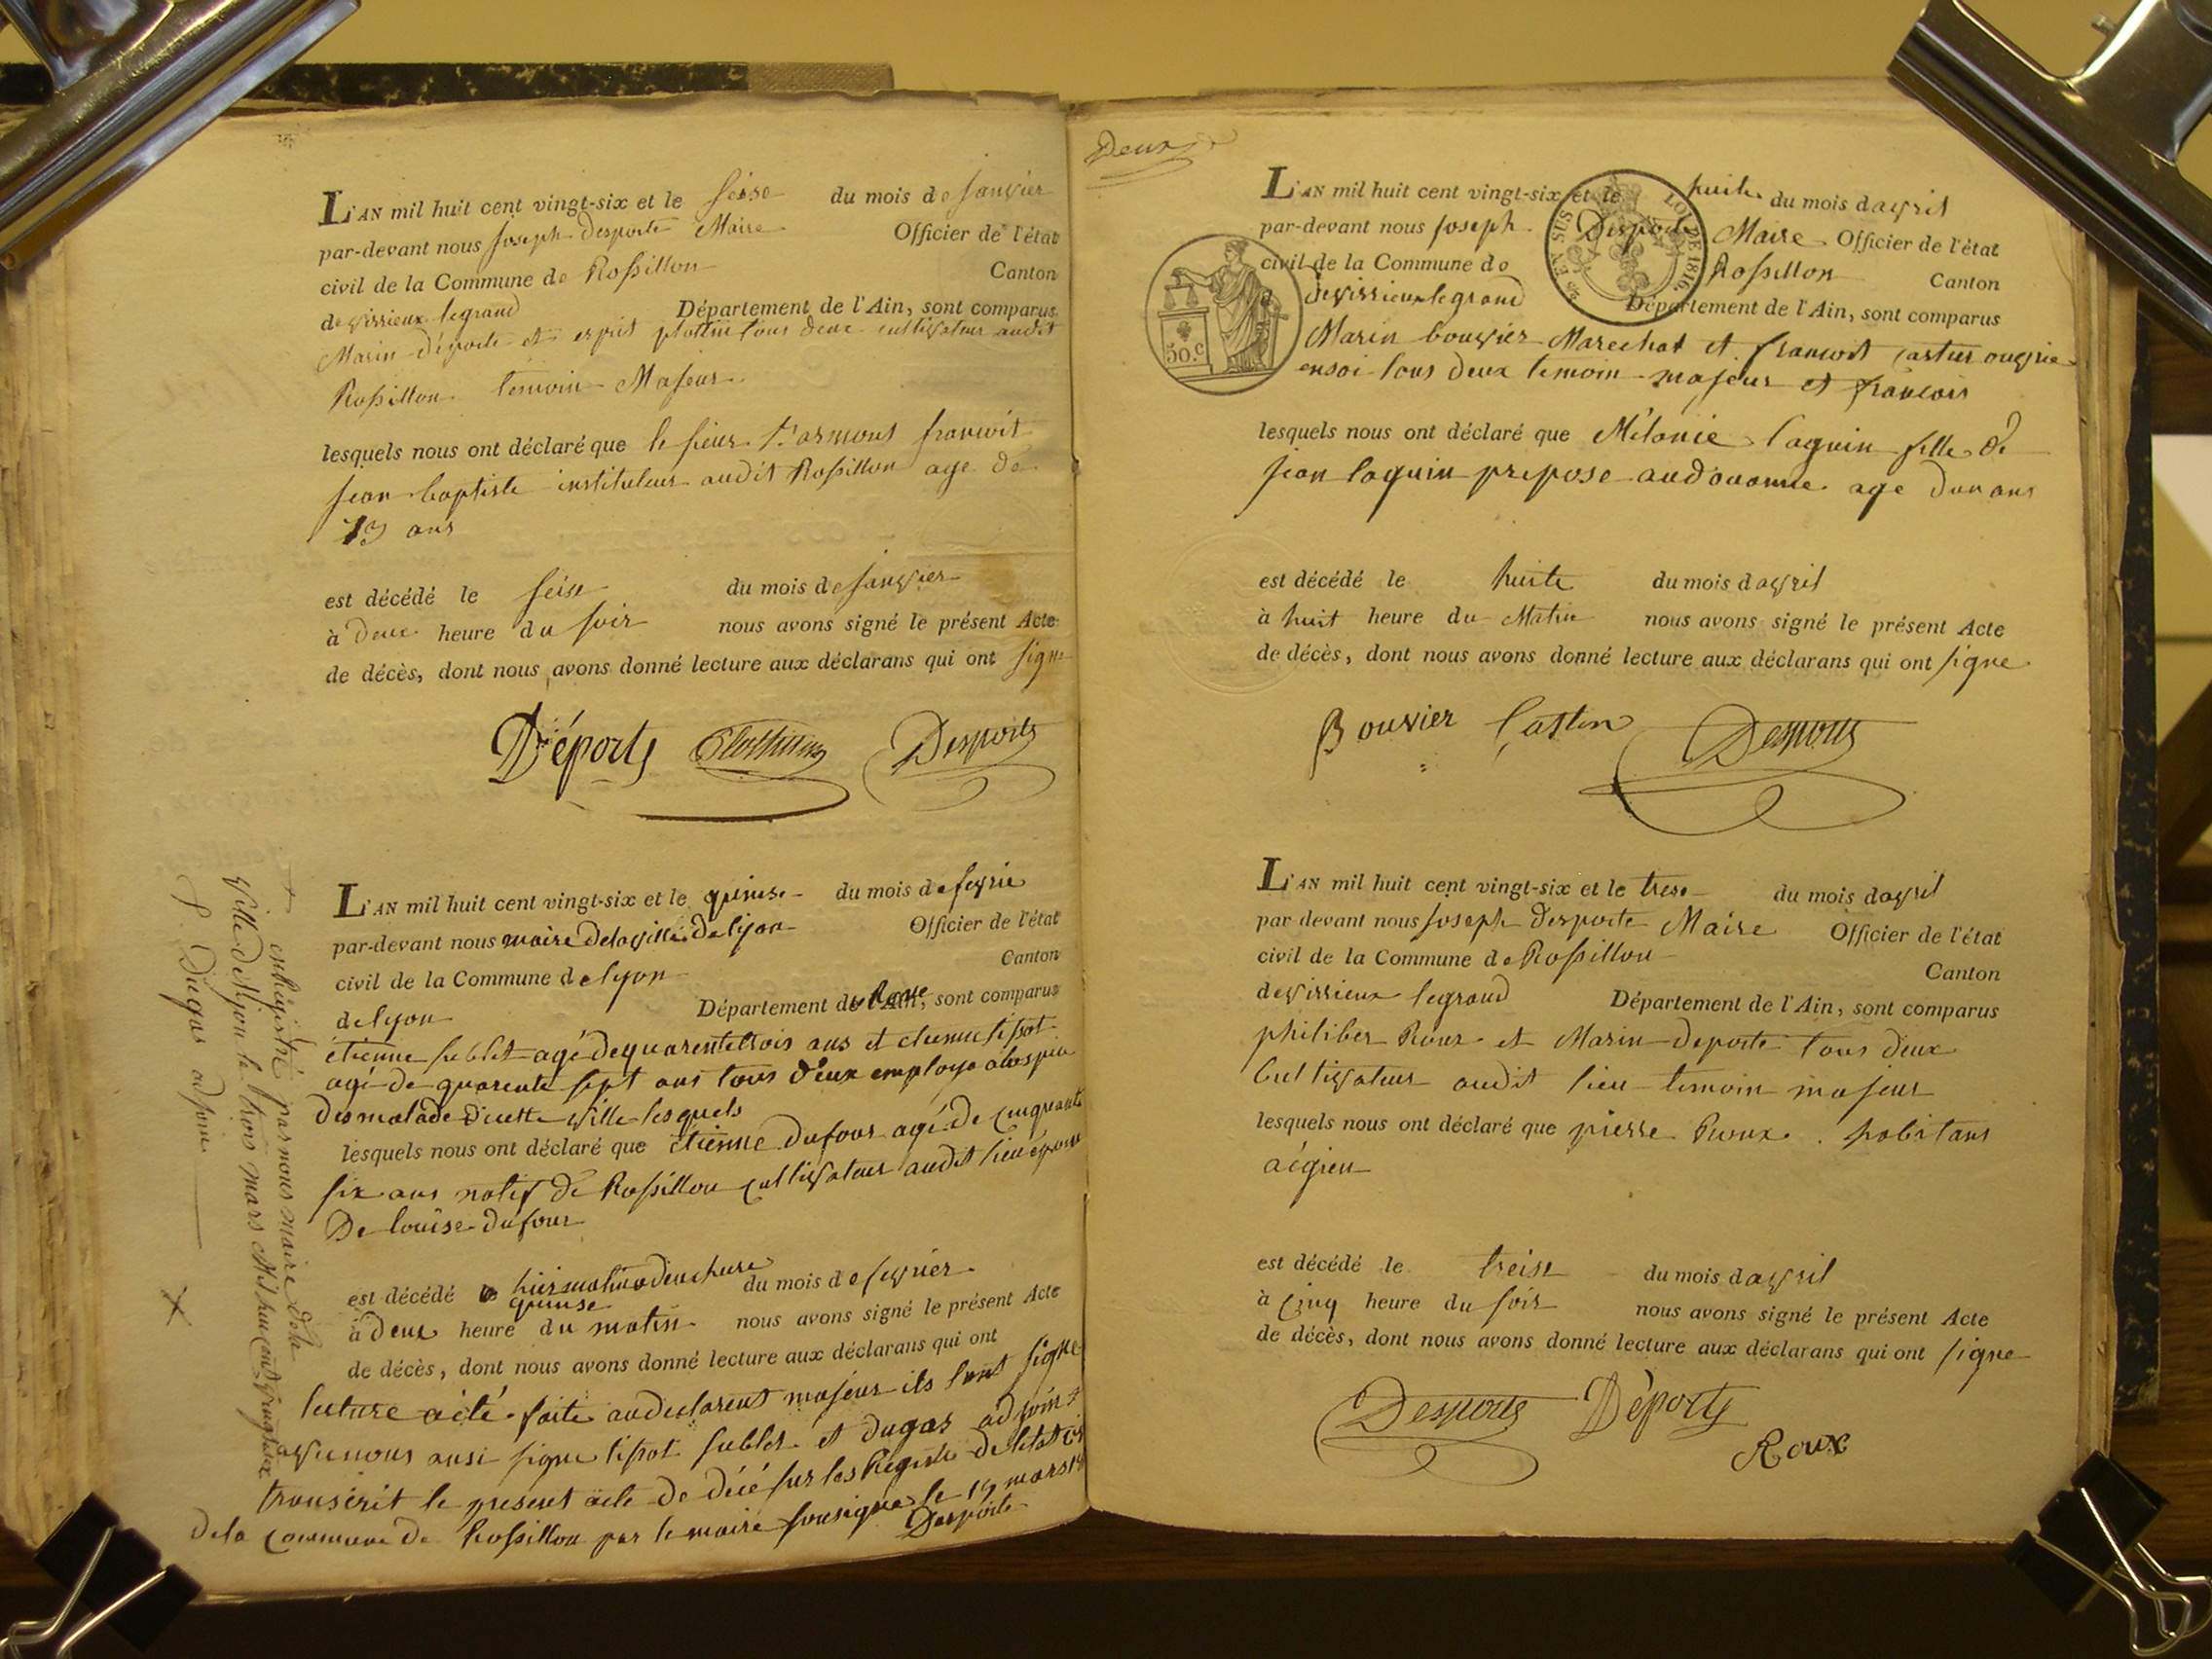 L'AN mil huit cent vingt-six et le seise du mois de janvier
par-devant nous joseph Desporte Maire Officier de l'état
civil de la Commune de Rossillon Canton
de virieux legrand Département de l'Ain, sont comparus
Marin déporte et esprit plottin tous deux cultivateur audit
Rossillon temoin Majeur
lesquels nous ont déclaré que le sieur francoit
jean baptiste instituteur audit Rossillon age de
73 ans
est décédé le seise du mois de janvier
à deux heure du soir nous avons signé le présent Acte
de décès, dont nous avons donné lecture aux déclarans qui ont signe
Déporte Desporte
L'AN mil huit cent vingt-six et le quinse du mois de fevrie
par-devant nous maire delaville de lyon Officier de l'état
civil de la Commune de lyon Canton
de lyon Département de l'Ain, sont comparus
étienne sublet agé de quarentetrois ans et etienne
agé de quarente sept ans tous deux employe
des malade dicette ville lesquels
lesquels nous ont déclaré que étienne dufour agé de cinquante
six ans natif de Rossillon cultivateur audit lieu époux
De louise dufour
est décédé hier matin a deux hure du mois de fevrier
quinse
à deux heure du matin nous avons signé le présent Acte
de décès, dont nous avons donné lecture aux déclarans qui ont
lecture aité faite audeclarent majeur ils signe
nous ansi signe sublet et dugas adjoint
transcrit le present acte de décé sur les Registre
dela commune de Rossillon par le maire sousigne le 19 mars
Desporte
+ enregistré par nous maire dela
ville de lyon le trois mars mil huit cent vingtsix
Dugas adjoint
X
Deux
L'AN mil huit cent vingt-six et le huite du mois davril
par-devant nous joseph Desporte Maire Officier de l'état
civil de la Commune de Rossillon Canton
devirrieux legrand Département de l'Ain, sont comparus
Marin bouvier Marechal et francois ouvrie
ensoi tous deux temoin majeur et francois
lesquels nous ont déclaré que Mélanie laquin fille de
jean laquin prepose audouanne age dun ans
LOI DE 1816.
50.c
est décédé le huite du mois davril
à huit heure du Matin nous avons signé le présent Acte
de décès, dont nous avons donné lecture aux déclarans qui ont signe
Bouvier Desporte
L'AN mil huit cent vingt-six et le trese du mois davril
par devant nous joseph Desporte Maire Officier de l'état
civil de la Commune de Rossillon Canton
devirieux legrand Département de l'Ain, sont comparus
philiber Roux et Marin deporte tous deux
Cultivateur audit lieu temoin majeur
lesquels nous ont déclaré que pierre Roux habitans
aégieu
est décédé le treise du mois davril
à cinq heure du soir nous avons signé le présent Acte
de décès, dont nous avons donné lecture aux déclarans qui ont signe
Desporte Déporte
Roux